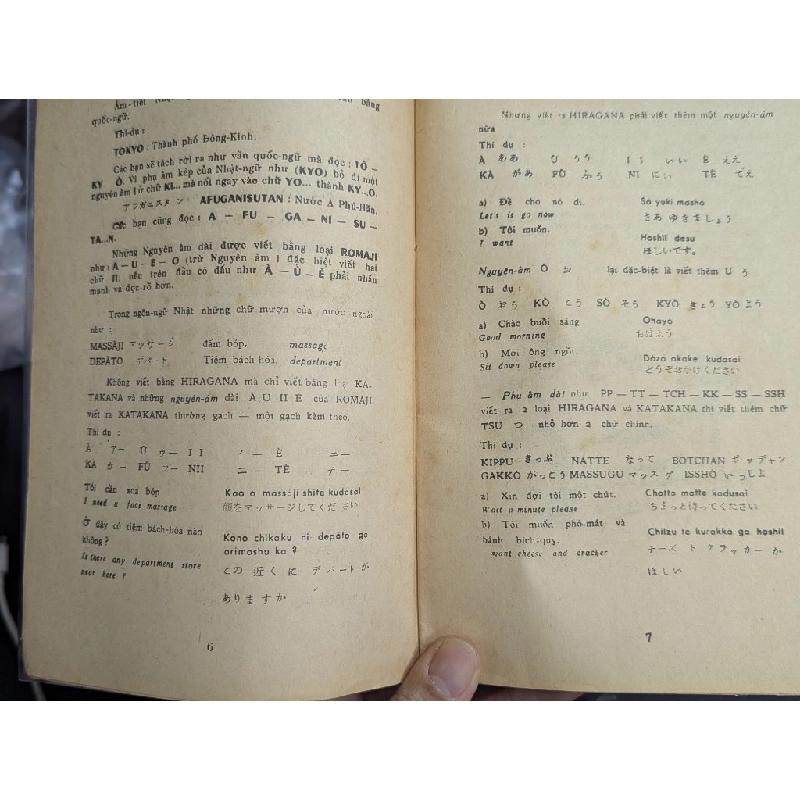 quốc-ngữ.
Thí-dụ :
TOKYO : Thành phố Đông-Kinh.
Các bạn sẽ tách rời ra như vần quốc-ngữ mà đọc : TÔ –
KY Ô. Vì phụ âm kép của Nhật-ngữ như (KYO) bỏ đi một
nguyên âm I ở chữ KI... mà nối ngay vào chữ YO... thành KY...O.
アフガニスタン : AFUGANISUTAN : Nước A Phú-Hãn.
Các bạn cũng đọc : A – FU – GA – NI – SU –
TA...N.
Những Nguyên âm dài được viết bằng loại ROMAJI
như : A – U – E – O (trừ Nguyên âm I đặc biệt viết hai
chữ II. nếu trên đầu có dấu như À – Ù – È phải nhấn
mạnh và đọc rõ hơn.
Trong ngôn-ngữ Nhật những chữ mượn của nước ngoài
như :
MASSÀJI マッサージ đấm bóp. massage
DEPÀTO デパート Tiệm bách hóa. department
Không viết bằng HIRAGANA mà chỉ viết bằng KA-
TAKANA và những nguyên-âm dài A U II E của ROMAJI
viết ra KATAKANA thường gạch — một gạch kèm theo.
Thí dụ :
Tôi cần xoa bóp Kao o massàji shite kudasai
I need a face massage 顔をマッサージしてください
Ở đây có tiệm bách-hóa nào Kono chikaku ni depàto ga
không ? arimasu ka ?
Is there any department store この近くに デパートが
near here ? ありますか
6
Nhưng viết ra HIRAGANA phải viết thêm một nguyên-âm
nữa
Thí dụ :
À ああ Ù うう I I いい È ええ
KÀ かあ FÙ ふう NI にい TÈ てえ
a) Để cho nó đi. Sa yuki masho
Let's is go now さあ ゆきましょう
b) Tôi muốn. Hoshii desu
I want ほしいです。
Nguyên-âm Ô お lại đặc-biệt là viết thêm U う
Thí dụ :
Ô おう KÒ こう SÒ そう KYÒ きょう YÒ よう
a) Chào buổi sáng Ohayo
Good morning おはよう
b) Mời ông ngồi Dòzo okake kudasai
Sit down please どうぞおかけください
— Phụ âm dài như PP — TT — TCH — KK — SS — SSH
viết ra 2 loại HIRAGANA và KATAKANA thì viết thêm chữ
TSU つ nhỏ hơn chữ chính.
Thí dụ :
KIPPU きっぷ NATTE なって BOTCHAN
GAKKÒ がっこう MASSUGU マッスグ ISSHO いっしょ
a) Xin đợi tôi một chút. Chotto matte kudasai
Wait a minute please ちょっと待ってください
b) Tôi muốn phó-mát và Chiizu to kurakka ga hoshii
bánh bích-quy. チーズ トクラッカー が
want cheese and cracker ほしい
7